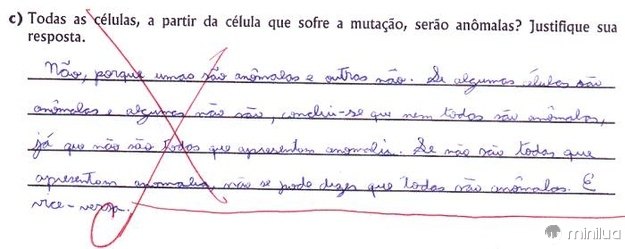 c) Todas as células, a partir da célula que sofre a mutação, serão anômalas? Justifique sua
resposta.
Não, porque umas são anômalas e outras não. Se algumas células são
anômalas e algumas não são, conclui-se que nem todas são anômalas,
já que não são todas que apresentam anomalia. Se não são todas que
apresentam anomalia, não se pode dizer que todas são anômalas. E
vice-versa.
minilua